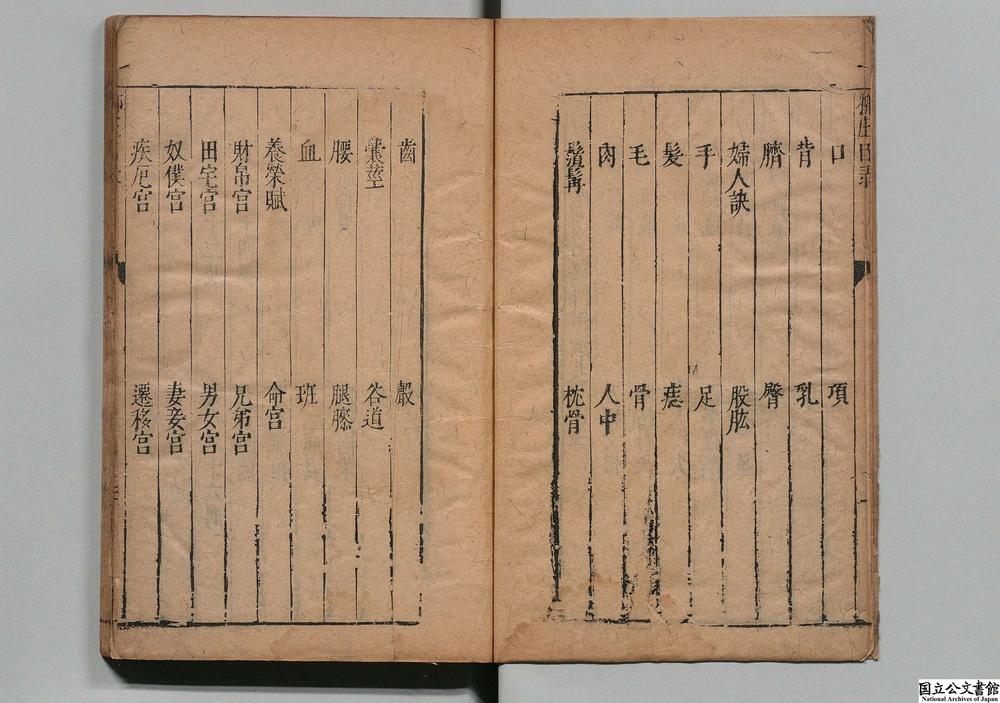 口　項
背　乳
臍　臀
婦人訣　股肱
手　足
髮　痣
毛　骨
肉　人中
鬚髯　枕骨
齒
囊莖　谷道
腰　腿膝
血　班
養榮賦　命宫
財帛宫　兄弟宫
田宅宫　男女宫
奴僕宫　妻妾宫
疾厄宫　遷移宫
国立公文書館
National Archives of Japan